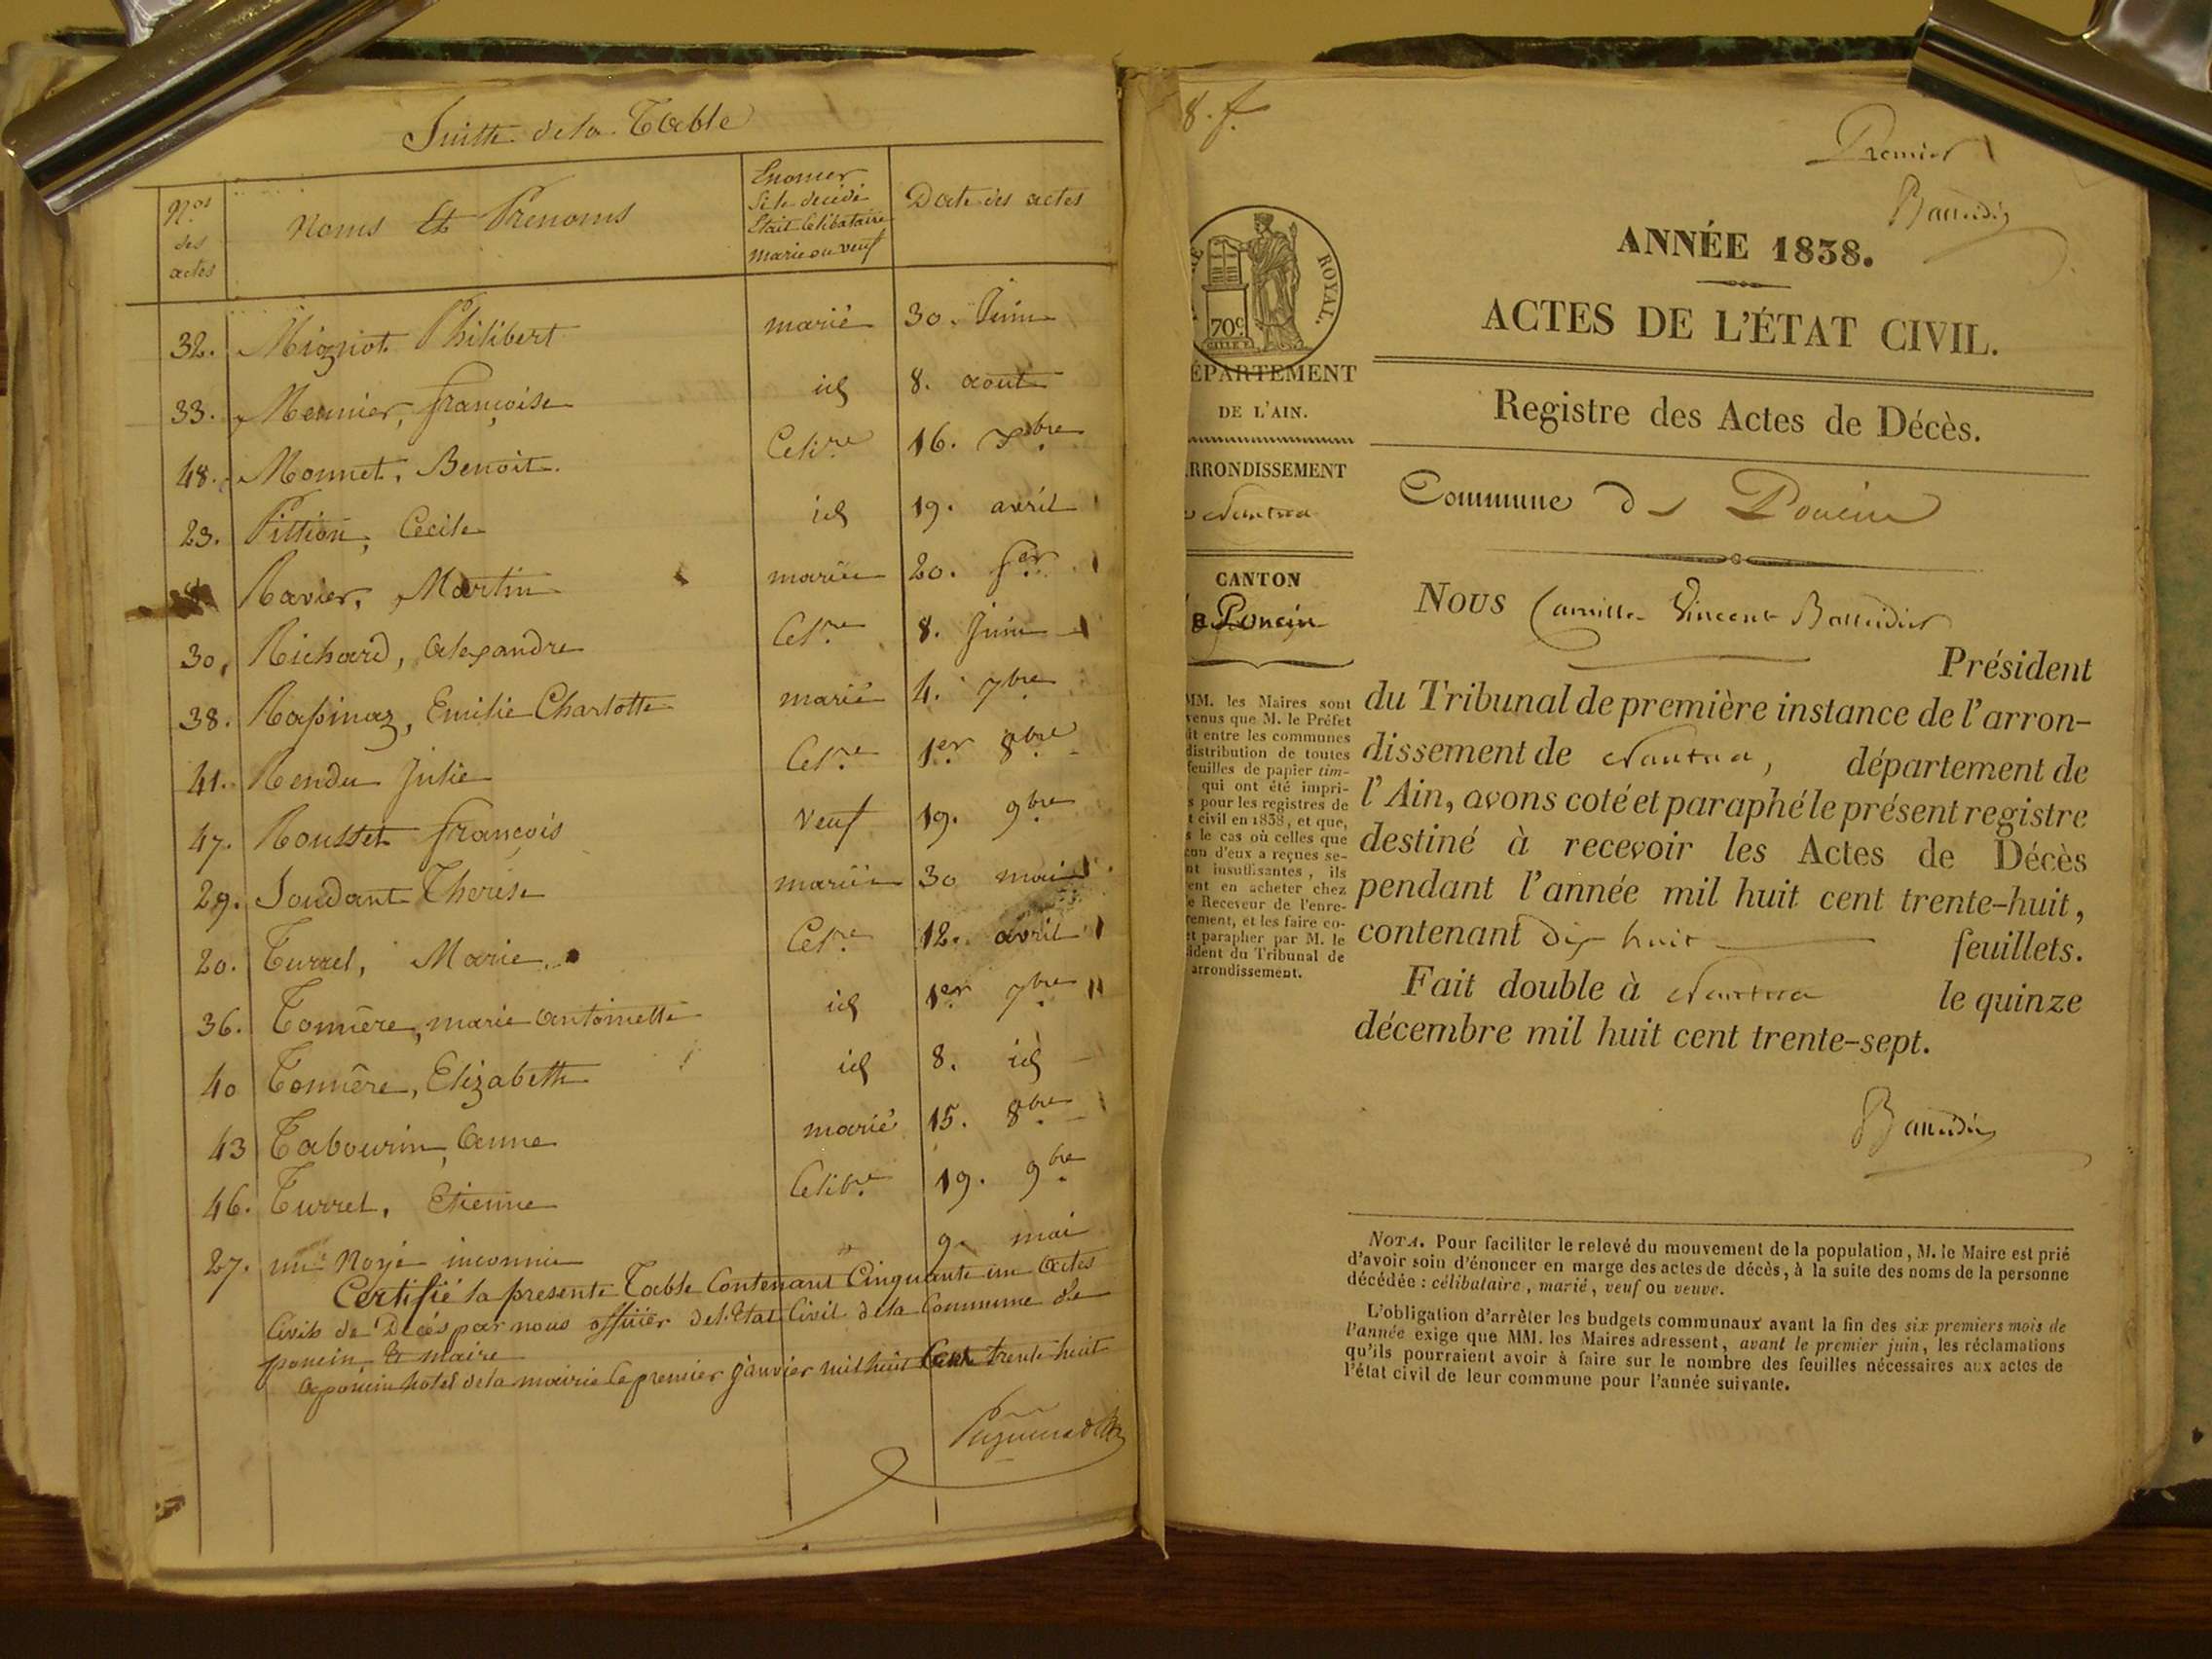 Suitte de la Table
Nos des actes
Noms Et Prenoms
Enoncer Si le decédé Etait Celibataire marie ou veuf
Date des actes
32. Mignot Philibert marié 30. Juin
33. Meunier, françoise id 8. aout
48. Monnet, Benoit. Celire 16. Xbre
23. Pittion, Cecile id 19. avril
8 Ravier, Martin mariée 20. fer
30, Richard, Alexandre Celre 8. Juin
38. Rassinaz, Emilie Charlotte marié 4. 7bre
41. Rendu Julie Celre 1er 8bre
47. Rousset françois veuf 19. 9bre
29. Soudant Therése mariée 30 mai
20. Turrel, Marie. Celre 12. avril
36. Tonnêre, marie antoinette id 1er 7bre
40 Tonnêre, Elizabeth id 8. id
43 Tabourin, Anne marié 15. 8bre
46. Turrel, Etienne Celibre 19. 9bre
27. un Noyé inconnu " 9. mai
Certifié la presente Table Contenant Cinquante un Actes
Civils de Décés par nous officier de l'Etat Civil de la Commune de
poncin & maire
A poncin hotel de la mairie le premier janvier mil huit Cent trente huit
8. f.
Premier
ANNÉE 1838.
ACTES DE L'ÉTAT CIVIL.
ROYAL.
70c
ÉPARTEMENT
DE L'AIN.
RRONDISSEMENT
Nantua
CANTON
Poncin
Registre des Actes de Décès.
Commune de Poncin
NOUS Camille Vincent Balleidier
Président
du Tribunal de première instance de l'arron-
dissement de Nantua, département de
l'Ain, avons coté et paraphé le présent registre
destiné à recevoir les Actes de Décès
pendant l'année mil huit cent trente-huit,
contenant dix huit feuillets.
Fait double à Nantua le quinze
décembre mil huit cent trente-sept.
MM. les Maires sont
venus que M. le Préfet
it entre les communes
distribution de toutes
feuilles de papier tim-
qui ont été impri-
s pour les registres de
t civil en 1838, et que,
s le cas où celles que
cun d'eux a reçues se-
nt insuffisantes, ils
ent en acheter chez
e Receveur de l'enre-
rement, et les faire co-
et parapher par M. le
sident du Tribunal de
arrondissement.
NOTA. Pour faciliter le relevé du mouvement de la population, M. le Maire est prié
d'avoir soin d'énoncer en marge des actes de décès, à la suite des noms de la personne
décédée : célibataire, marié, veuf ou veuve.
L'obligation d'arrêter les budgets communaux avant la fin des six premiers mois de
l'année exige que MM. les Maires adressent, avant le premier juin, les réclamations
qu'ils pourraient avoir à faire sur le nombre des feuilles nécessaires aux actes de
l'état civil de leur commune pour l'année suivante.